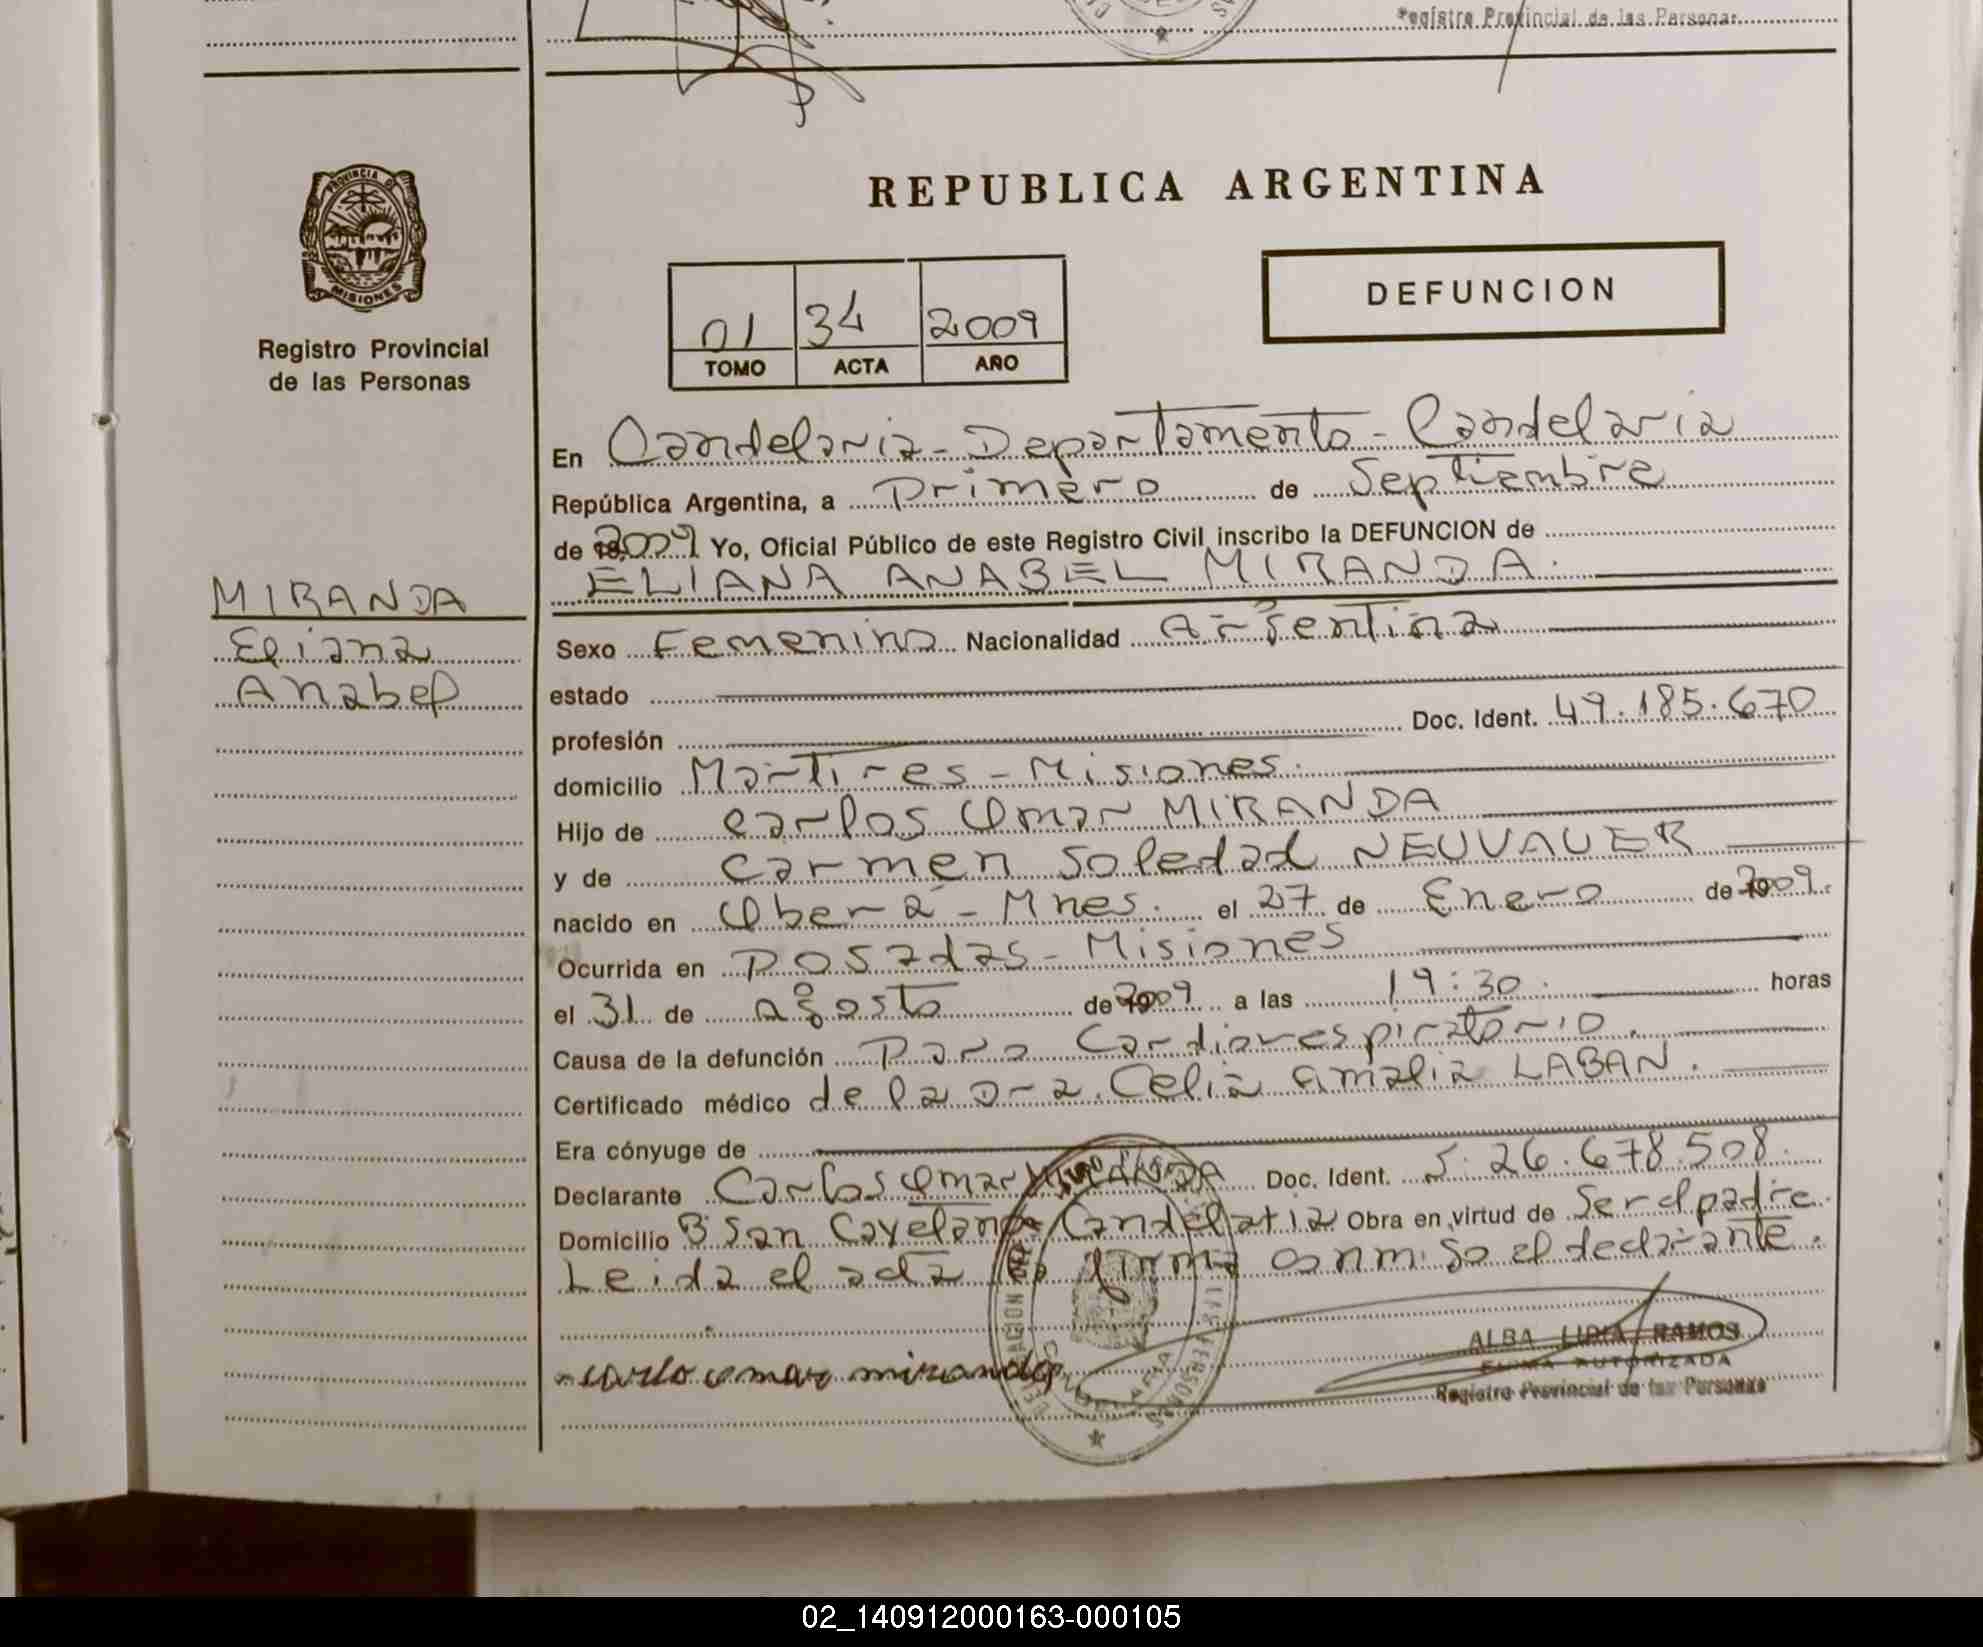 Registro Provincial de las Personas
PROVINCIA DE
MISIONES
Registro Provincial
de las Personas
REPUBLICA ARGENTINA
01 34 2009
TOMO ACTA AÑO
DEFUNCION
En Candelaria - Departamento - Candelaria
República Argentina, a Primero de Septiembre
de 2009 Yo, Oficial Público de este Registro Civil inscribo la DEFUNCION de
ELIANA ANABEL MIRANDA.
MIRANDA
Eliana
Anabel
Sexo Femenino Nacionalidad Argentina
estado
profesión Doc. Ident. 49.185.670
domicilio Martires - Misiones.
Hijo de Carlos Omar MIRANDA
y de Carmen Soledad NEUVAUER
nacido en Oberá - Mnes. el 27 de Enero de 2009.
Ocurrida en Posadas - Misiones
el 31 de Agosto de 2009 a las 19:30. horas
Causa de la defunción Paro Cardiorespiratorio.
Certificado médico de la Dra. Celia Amalia LABAN.
Era cónyuge de
Declarante Carlos Omar MIRANDA Doc. Ident. 26.678.508.
Domicilio B° San Cayetano Candelaria Obra en virtud de Ser el padre.
Leida el acta la firma conmigo el declarante.
carlo omar miranda
ALBA LIDIA RAMOS
FIRMA AUTORIZADA
Registro Provincial de las Personas
02_140912000163-000105